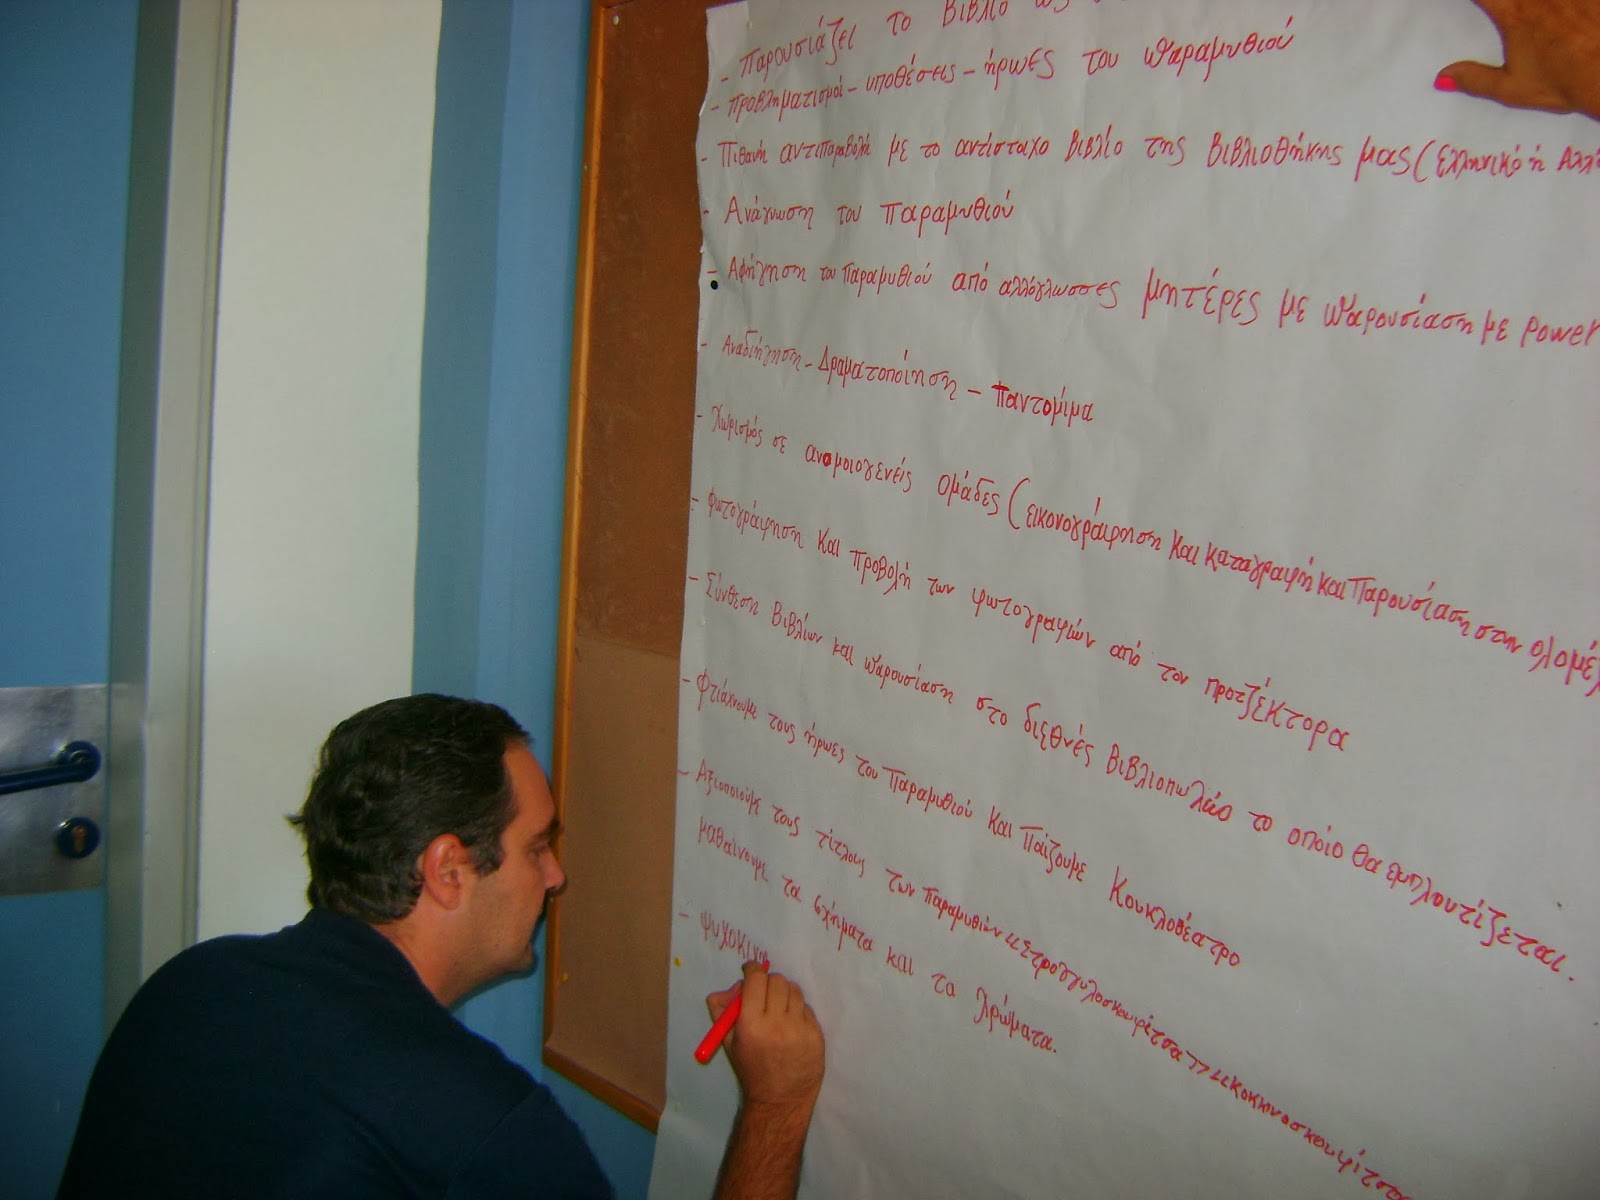 - Παρουσιάζει το βιβλίο ως
- Προβληματισμοί - υποθέσεις - ήρωες του παραμυθιού
- Πιθανή αντιπαραβολή με το αντίστοιχο βιβλίο της βιβλιοθήκης μας (Ελληνικό ή Αλλό
- Ανάγνωση του παραμυθιού
- Αφήγηση του παραμυθιού από αλλόγλωσσες μητέρες με παρουσίαση με power
- Αναδιήγηση - Δραματοποίηση - Παντομίμα
- Χωρισμός σε ανομοιογενείς ομάδες (εικονογράφηση και καταγραφή και Παρουσίαση στην ολομέλ
- Φωτογράφηση και προβολή των φωτογραφιών από τον προτζέκτορα
- Σύνθεση βιβλίων και παρουσίαση στο διεθνές βιβλιοπωλείο το οποίο θα εμπλουτίζεται.
- Φτιάχνουμε τους ήρωες του παραμυθιού και παίζουμε κουκλοθέατρο
- Αξιοποιούμε τους τίτλους των παραμυθιών "στρογγυλοσκουφίτσα" "κοκκινοσκουφίτσα
μαθαίνουμε τα σχήματα και τα χρώματα.
- Ψυχοκιν